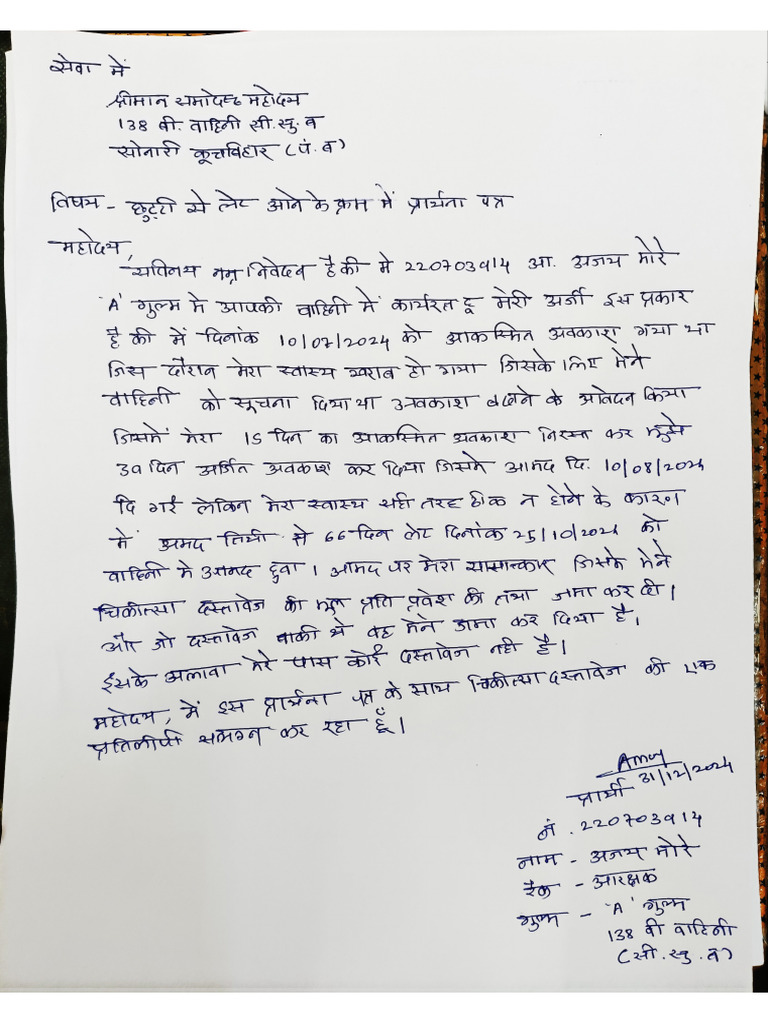 सेवा में
श्रीमान समादेष्टा महोदय
138 वी. वाहिनी सी.सु.ब
सोनारी कूचबिहार (पं.ब)
विषय - छुट्टी से लेट आने के क्रम में प्रार्थना पत्र
महोदय,
सविनय नम्र निवेदन है की मे 220703914 आ. अजय मोरे
'A' गुल्म मे आपकी वाहिनी में कार्यरत हू मेरी अर्जी इस प्रकार
है की में दिनांक 10/07/2024 को आकस्मित अवकाश गया था
जिस दौरान मेरा स्वास्थ खराब हो गया जिसके लिए मेने
वाहिनी को सूचना दिया था अवकाश बढाने के आवेदन किया
जिसमें मेरा 15 दिन का आकस्मित अवकाश निरस्त कर मुझे
30 दिन अर्जित अवकाश कर दिया जिसमे आमद दि. 10/08/2024
दि गई लेकिन मेरा स्वास्थ सही तरह ठीक न होने के कारण
में आमद तिथी से 66 दिन लेट दिनांक 25/10/2024 को
वाहिनी मे आमद हुवा । आमद पर मेरा साक्षात्कार जिसमे मेने
चिकीत्सा दस्तावेज की मूल प्रति प्रवेश की तथा जमा कर दी ।
और जो दस्तावेज बाकी थे वह मेने जमा कर दिया है,
इसके अलावा मेरे पास कोई दस्तावेज नही है ।
महोदय, में इस प्रार्थना पत्र के साथ चिकीत्सा दस्तावेज की एक
प्रतिलीपी सलग्न कर रहा हूँ ।
प्रार्थी 31/12/2024
नं. 220703914
नाम - अजय मोरे
रैंक - आरक्षक
गुल्म - 'A' गुल्म
138 वी वाहिनी
(सी.सु.ब)